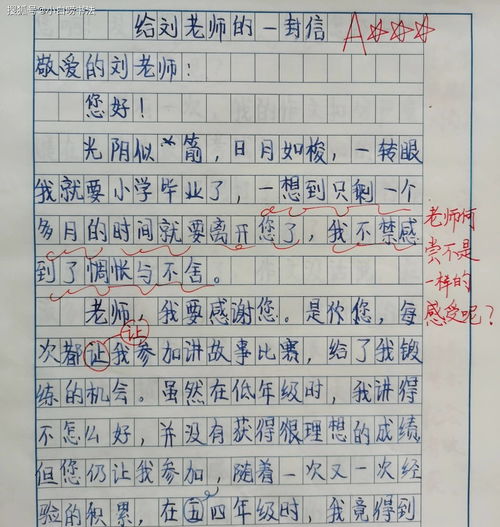 搜狐号@小白劳书法
给刘老师的一封信
A☆☆☆
敬爱的刘老师:
您好!
光阴似箭,日月如梭,一转眼
我就要小学毕业了,一想到只剩一个
多月的时间就要离开您了,我不禁感
到了惆怅与不舍。
老师何
尝不是
一样的
感受呢?
老师,我要感谢您。是你您,每
让
次都让我参加讲故事比赛,给了我锻
练的机会。虽然在低年级时,我讲得
不怎么好,并没有获得很理想的成绩,
但您仍让我参加,随着一次又一次经
验的积累,在五四年级时,我竟得到